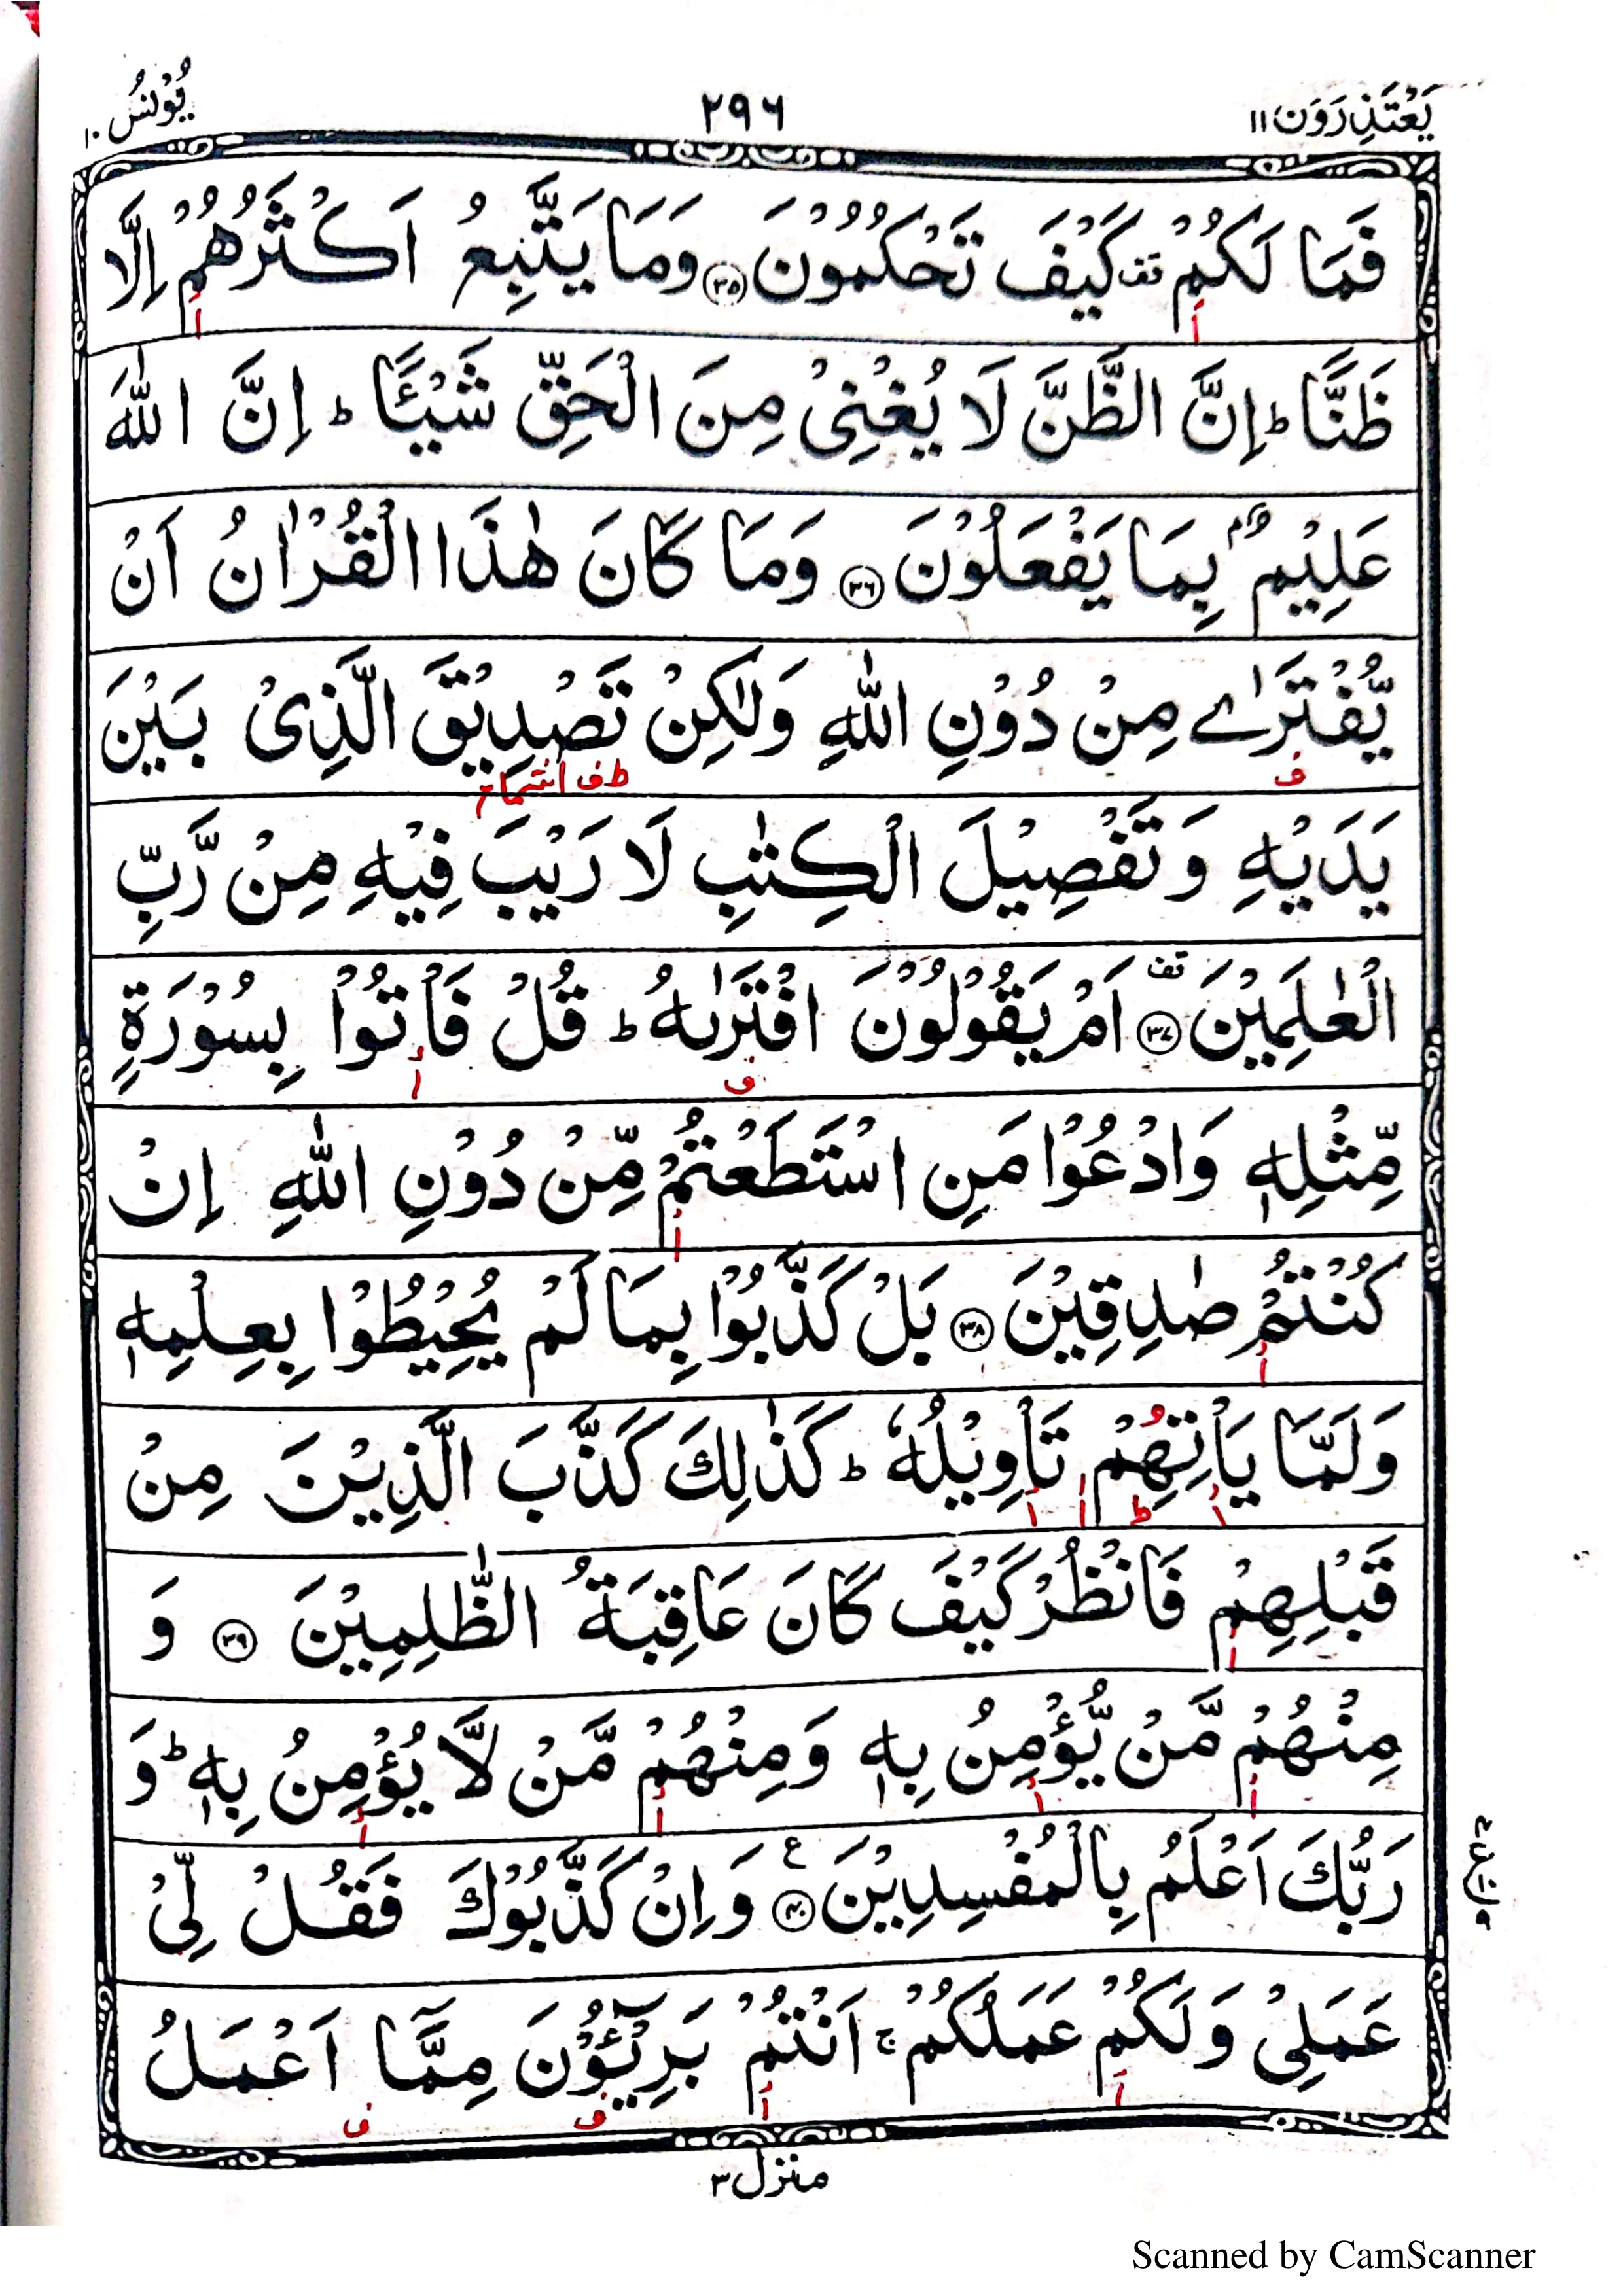 يَعْتَذِرُوْنَ ١١
٢٩٦
يُوْنُسُ ١٠
فَمَا لَكُمْ قف كَيْفَ تَحْكُمُوْنَ ﴿٣٥﴾ وَمَا يَتَّبِعُ اَكْثَرُهُمْ اِلَّا
ظَنًّا ؕ اِنَّ الظَّنَّ لَا يُغْنِىْ مِنَ الْحَقِّ شَيْـًٔا ؕ اِنَّ اللّٰهَ
عَلِيْمٌۢ بِمَا يَفْعَلُوْنَ ﴿٣٦﴾ وَمَا كَانَ هٰذَا الْقُرْاٰنُ اَنْ
يُّفْتَرٰى مِنْ دُوْنِ اللّٰهِ وَلٰكِنْ تَصْدِيْقَ الَّذِىْ بَيْنَ
ف
ط ف اشمام
يَدَيْهِ وَتَفْصِيْلَ الْكِتٰبِ لَا رَيْبَ فِيْهِ مِنْ رَّبِّ
الْعٰلَمِيْنَ ﴿٣٧﴾ قف اَمْ يَقُوْلُوْنَ افْتَرٰىهُ ؕ قُلْ فَاْتُوْا بِسُوْرَةٍ
ف أ
مِّثْلِهٖ وَادْعُوْا مَنِ اسْتَطَعْتُمْ مِّنْ دُوْنِ اللّٰهِ اِنْ
كُنْتُمْ صٰدِقِيْنَ ﴿٣٨﴾ بَلْ كَذَّبُوْا بِمَا لَمْ يُحِيْطُوْا بِعِلْمِهٖ
وَلَمَّا يَاْتِهِمْ تَاْوِيْلُهٗ ؕ كَذٰلِكَ كَذَّبَ الَّذِيْنَ مِنْ
قَبْلِهِمْ فَانْظُرْ كَيْفَ كَانَ عَاقِبَةُ الظّٰلِمِيْنَ ﴿٣٩﴾ وَ
مِنْهُمْ مَّنْ يُّؤْمِنُ بِهٖ وَمِنْهُمْ مَّنْ لَّا يُؤْمِنُ بِهٖ ؕ وَ
رَبُّكَ اَعْلَمُ بِالْمُفْسِدِيْنَ ﴿٤٠﴾ ع وَاِنْ كَذَّبُوْكَ فَقُلْ لِّىْ
عَمَلِىْ وَلَكُمْ عَمَلُكُمْ ۚ اَنْتُمْ بَرِيْٓـُٔوْنَ مِمَّاۤ اَعْمَلُ
أ أ ف ف
منزل ٣
Scanned by CamScanner